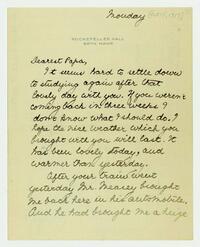 Monday
ROCKEFELLER HALL
BRYN MAWR
Dearest Papa,
It seems hard to settle down
to studying again after that
lovely day with you. If you weren't
coming back in three weeks I
don't know what I should do. I
hope the nice weather which you
brought with you will last. It
has been lovely today, and
warmer than yesterday.
After your train went
yesterday Mr. brought
me back here in his automobile.
And he had brought me a huge